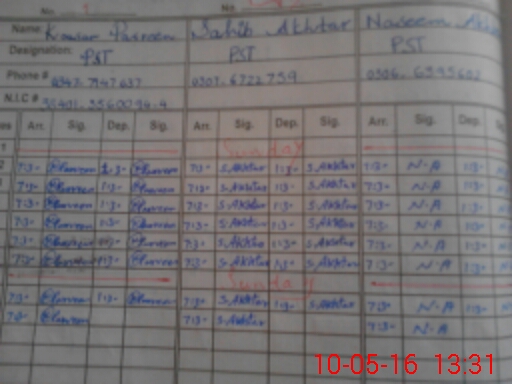 No. 1 No.
Name: Kausar Parveen Sahib Akhtar Naseem
Designation: PST PST PST
Phone # 0307-6722759
N.I.C #
Arr. Sig. Dep. Sig. Arr. Sig. Dep. Sig. Arr. Sig. Dep.
1 Sunday
2 7:3- Parveen 1:3- Parveen 7:3- S.Akhtar 1:3- S.Akhtar 7:3- N.A 1:3-
7:3- Parveen 1:3- Parveen 7:3- S.Akhtar 1:3- S.Akhtar 7:3- N.A 1:3-
7:3- Parveen 1:3- Parveen 7:3- S.Akhtar 1:3- S.Akhtar 7:3- N.A 1:3-
7:3- Parveen 1:3- Parveen 7:3- S.Akhtar 1:3- S.Akhtar 7:3- N.A 1:3-
7:3- Parveen 1:3- Parveen 7:3- S.Akhtar 1:3- S.Akhtar 7:3- N.A 1:3-
7:3- Parveen 1:3- Parveen 7:3- S.Akhtar 1:3- S.Akhtar 7:3- N.A 1:3-
Sunday
7:3- Parveen 1:3- Parveen 7:3- S.Akhtar 1:3- S.Akhtar 7:3- N.A 1:3-
7:3- Parveen 7:3- S.Akhtar 7:3- N.A
10-05-16 13:31